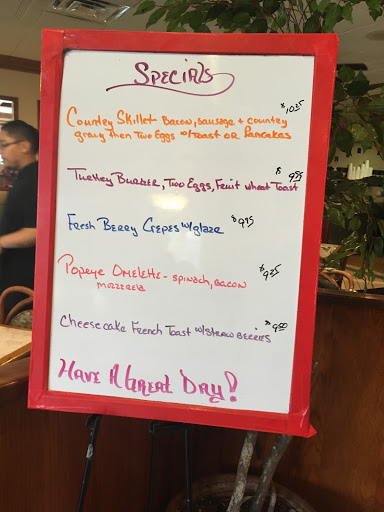 Specials
Country Skillet Bacon, sausage + country $10.25
gravy then Two Eggs w/Toast OR Pancakes
Turkey Burger, Two Eggs, Fruit wheat Toast $9.95
Fresh Berry Crepes w/glaze $9.95
Popeye Omelette - spinach, bacon $9.25
mozzerela
Cheesecake French Toast w/strawberries $9.50
Have A Great Day!